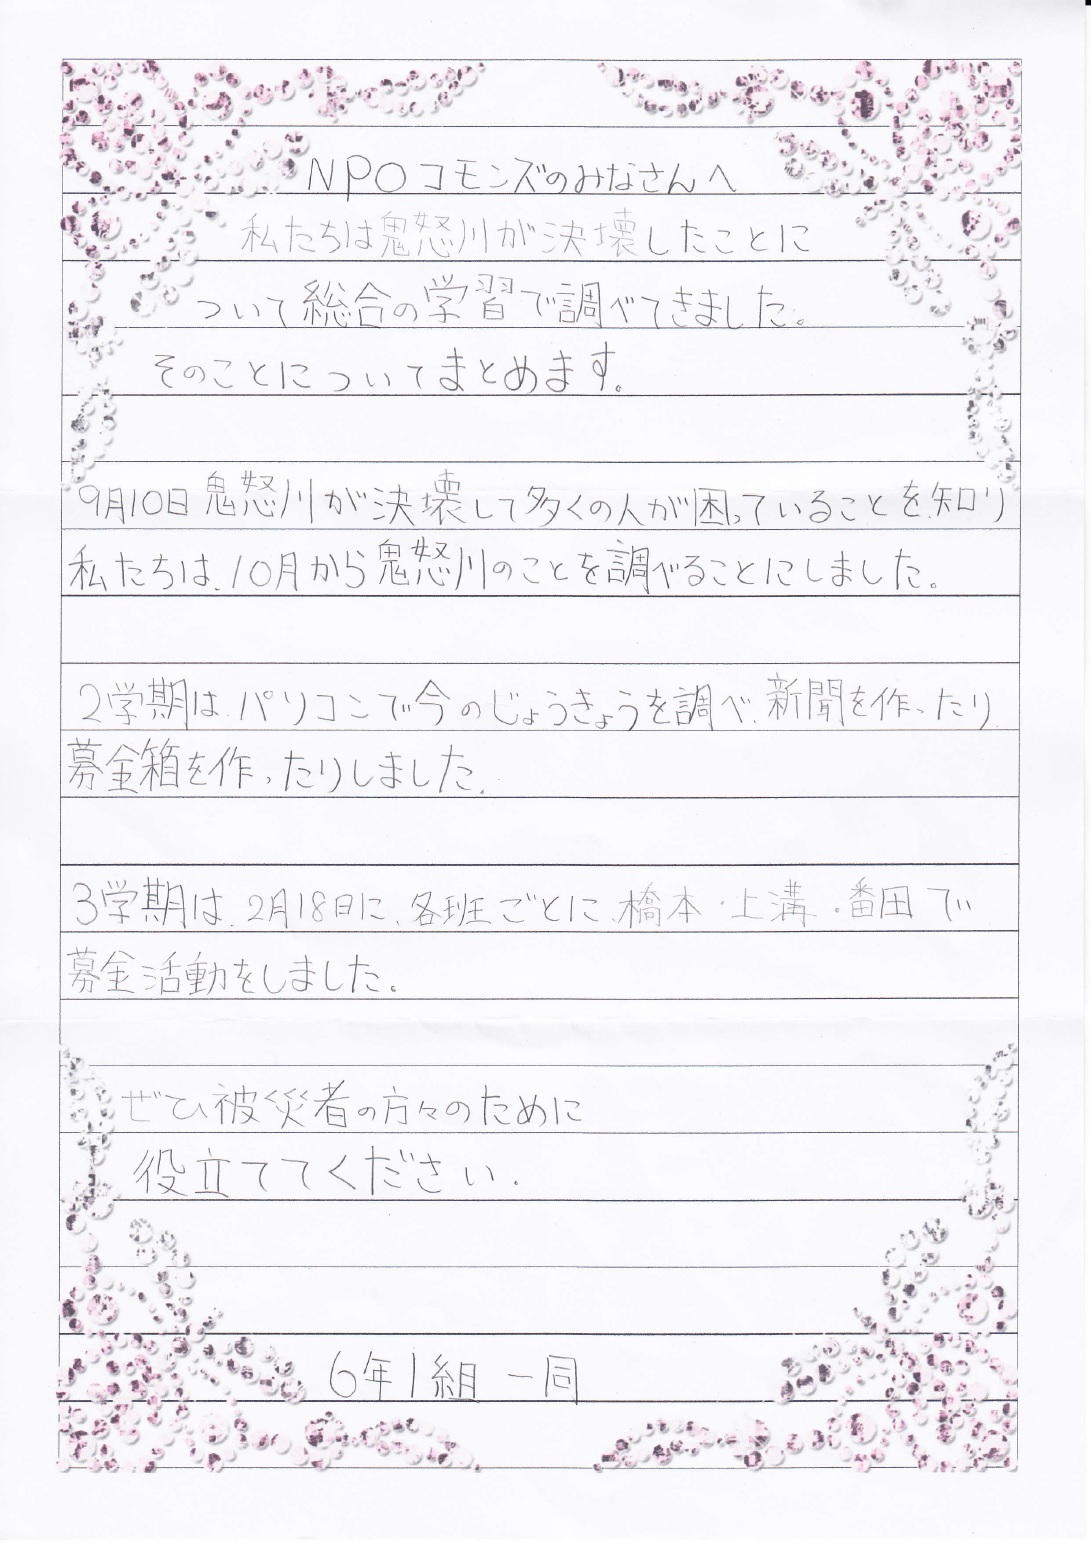 NPOコモンズのみなさんへ
私たちは鬼怒川が決壊したことに
ついて総合の学習で調べてきました。
そのことについてまとめます。
9月10日鬼怒川が決壊して多くの人が困っていることを知り
私たちは、10月から鬼怒川のことを調べることにしました。
2学期は、パソコンで今のじょうきょうを調べ、新聞を作ったり
募金箱を作ったりしました。
3学期は、2月18日に、各班ごとに、橋本・上溝・番田で
募金活動をしました。
ぜひ被災者の方々のために
役立ててください。
6年1組 一同